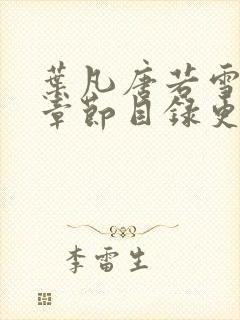 葉凡唐若雪
章節目錄更
李雷生